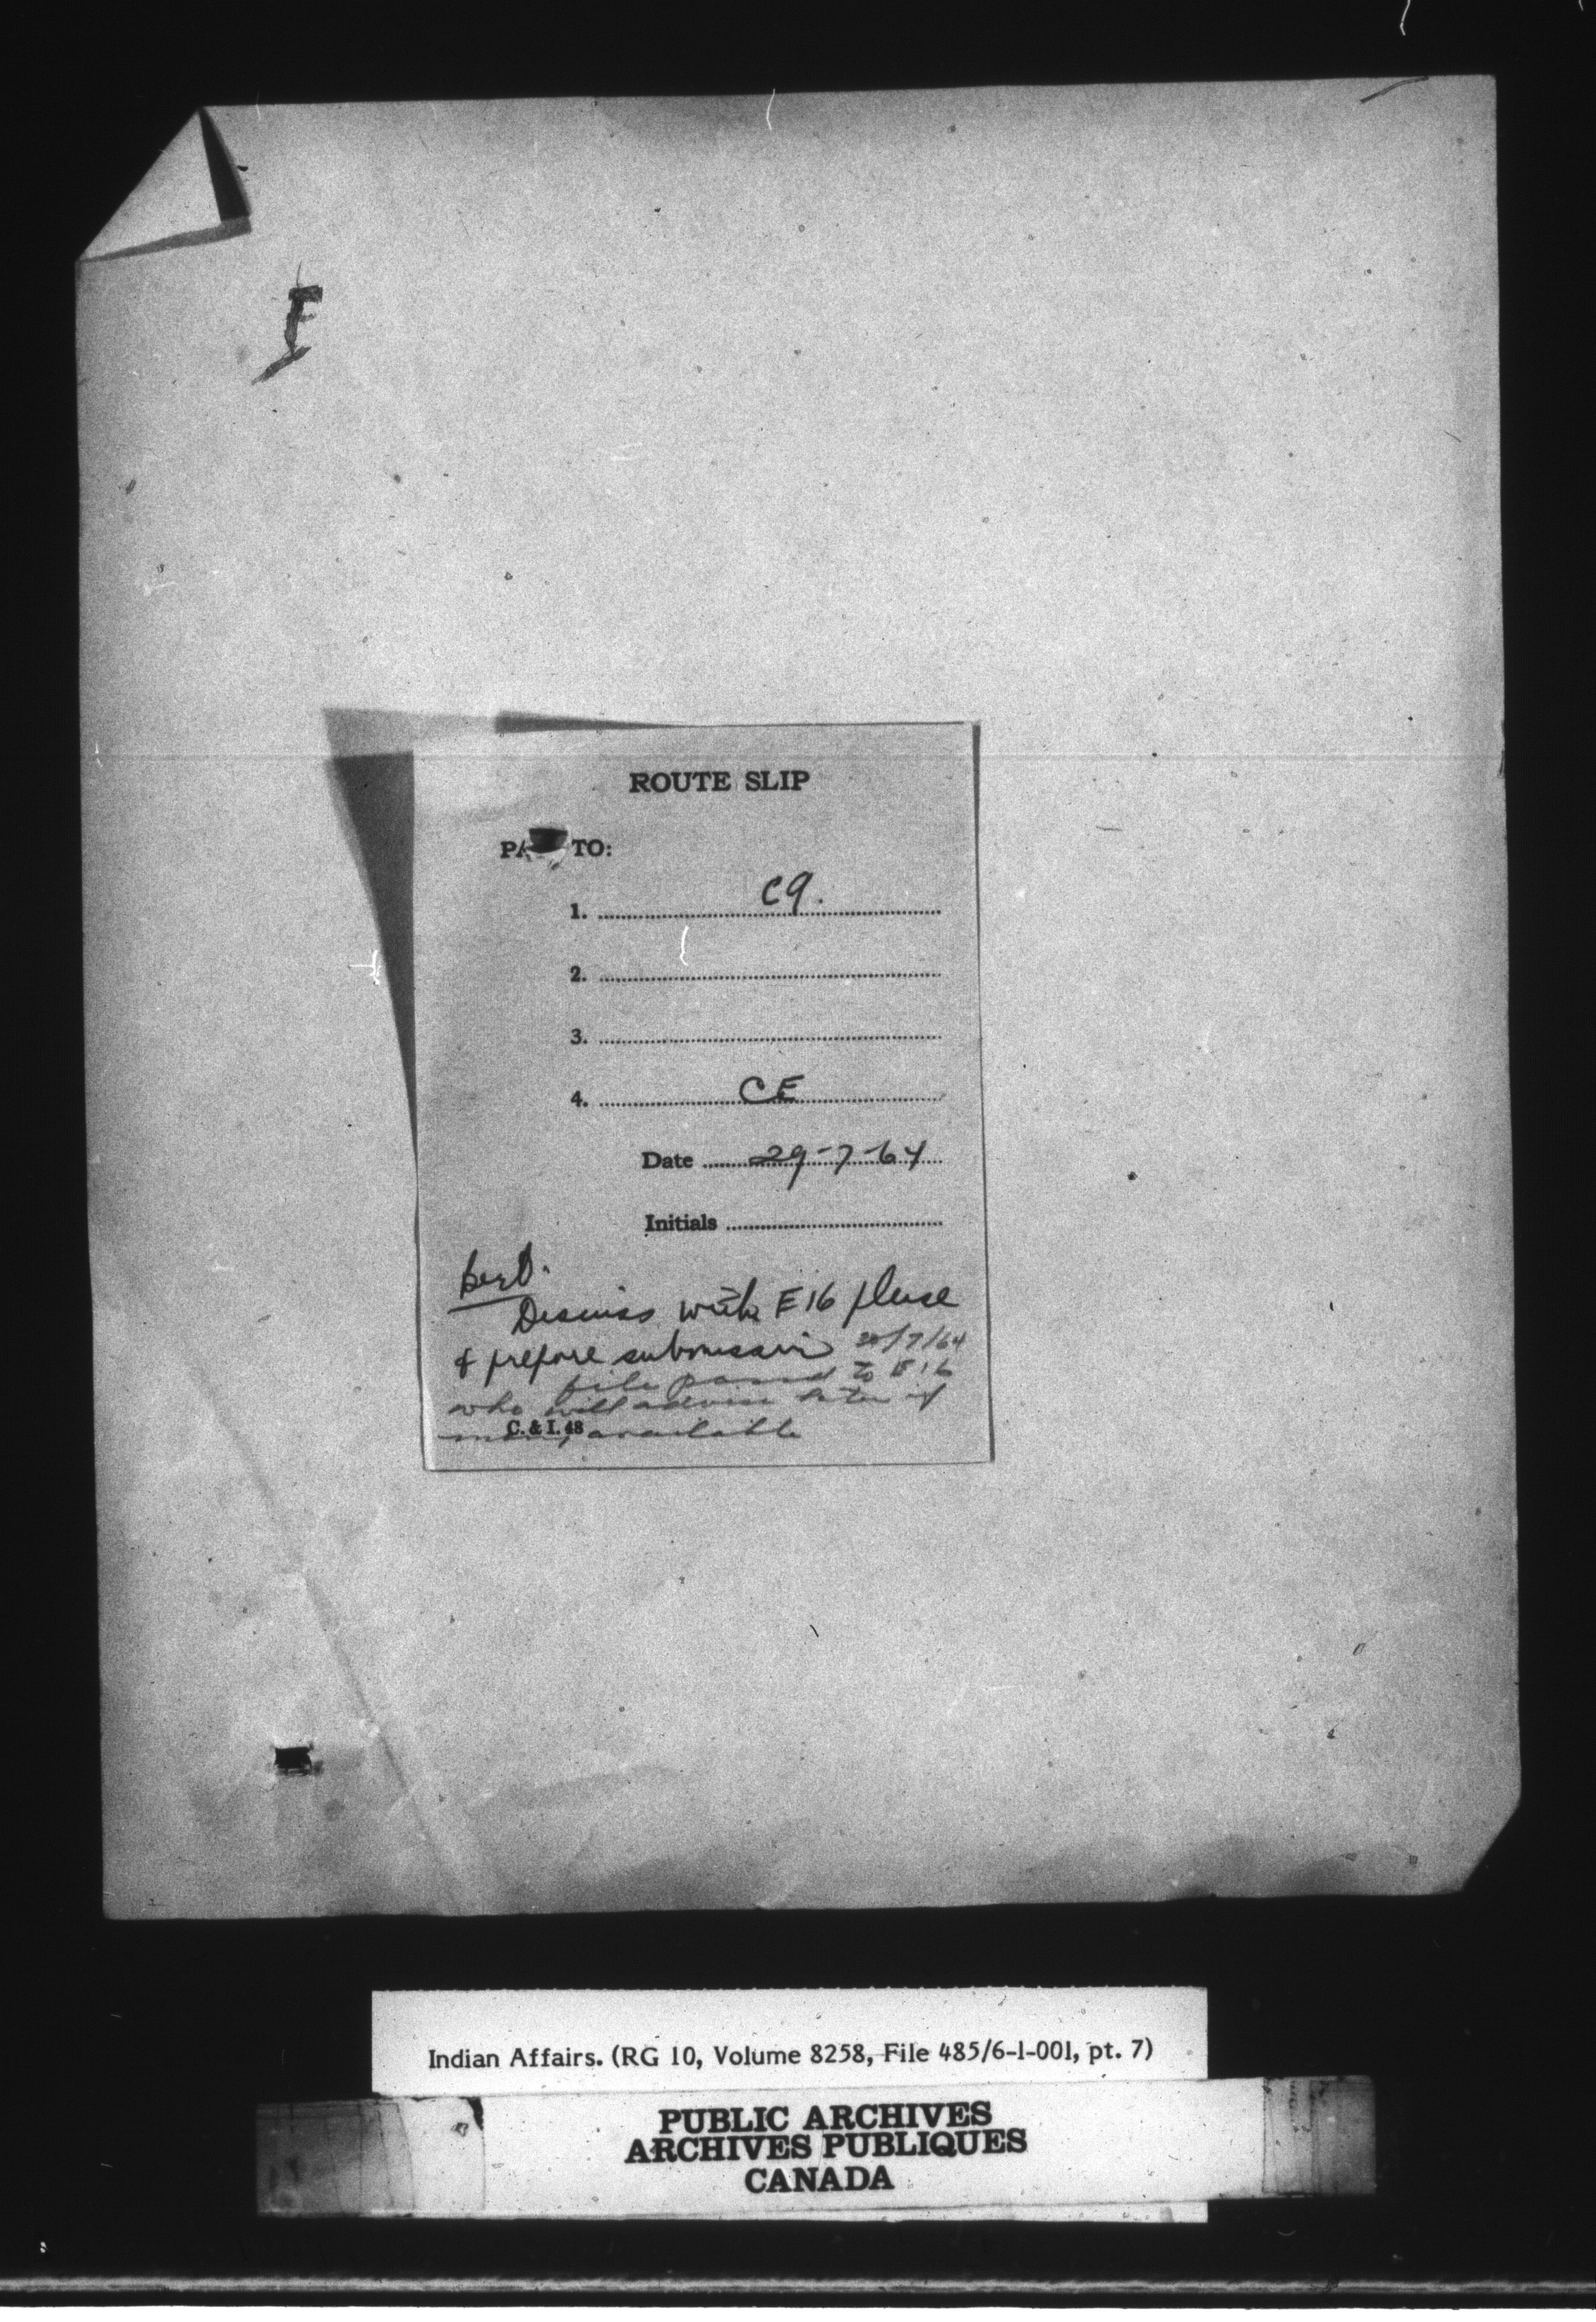 F
ROUTE SLIP
PA TO:
1. C9.
2.
3.
4. CE
Date 29-7-64
Initials
Bert.
Discuss with E16 please
& prepare submission /7/64
file passed to E16
who will advise later if
available
C. & I. 48
Indian Affairs. (RG 10, Volume 8258, File 485/6-1-001, pt. 7)
PUBLIC ARCHIVES
ARCHIVES PUBLIQUES
CANADA